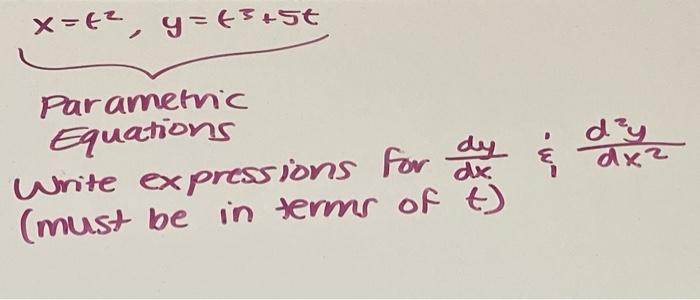 x=t², y=t³+5t
Parametric
Equations
Write expressions for dy/dx & d²y/dx²
(must be in terms of t)